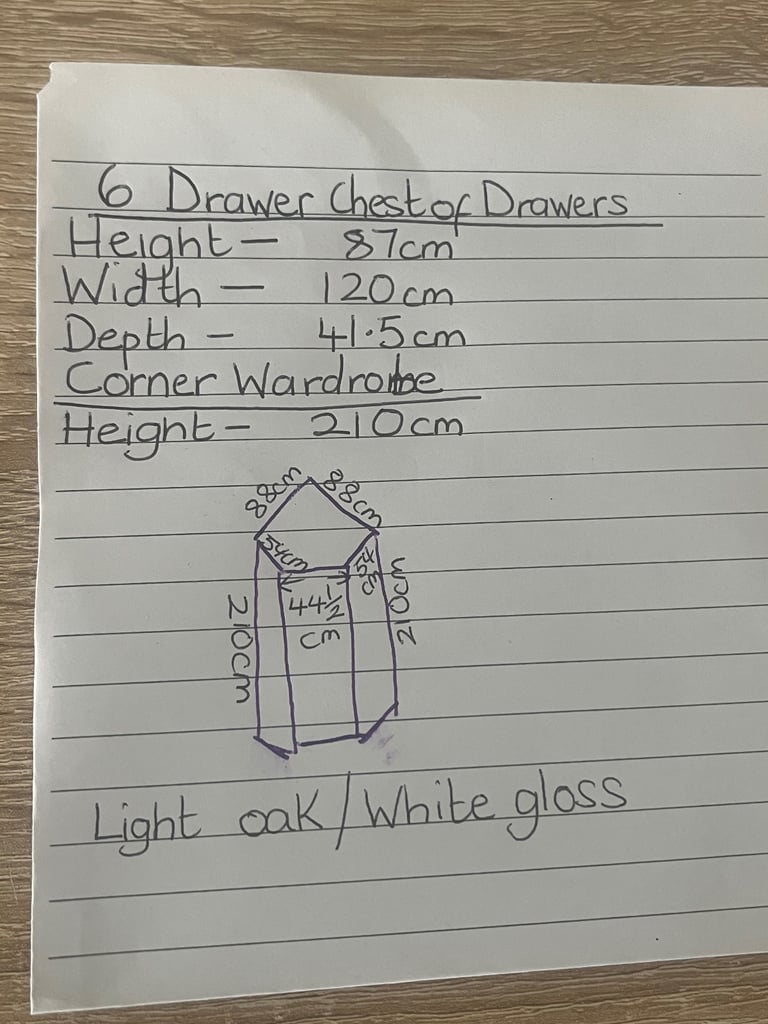 6 Drawer Chest of Drawers
Height - 87cm
Width - 120cm
Depth - 41.5cm
Corner Wardrobe
Height - 210cm
88cm 88cm
54cm 54cm
44½ cm
210cm 210cm
Light oak / White gloss